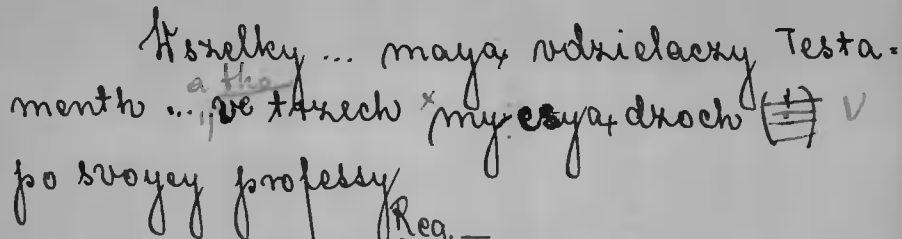 Wszelky ... mayą vdzielaczy Testa=
a tho
menth ... ve trzech x myesyądzoch (!) V
po svoyey professy Reg. —